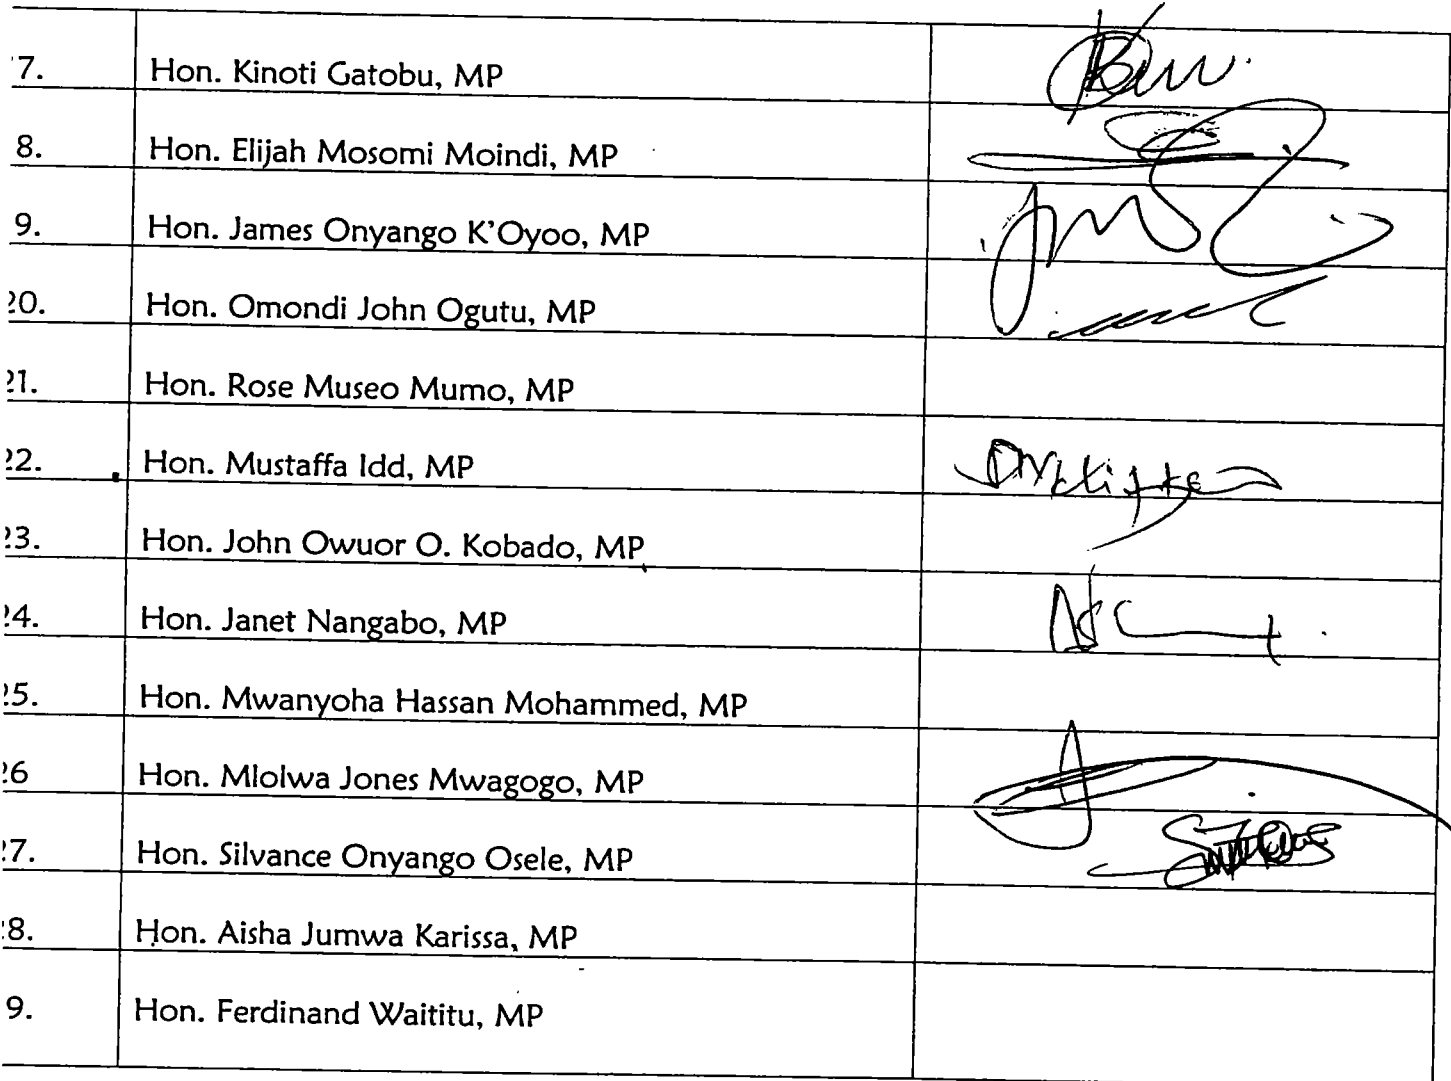 7. Hon. Kinoti Gatobu, MP
8. Hon. Elijah Mosomi Moindi, MP
9. Hon. James Onyango K'Oyoo, MP
20. Hon. Omondi John Ogutu, MP
21. Hon. Rose Museo Mumo, MP
22. Hon. Mustaffa Idd, MP
23. Hon. John Owuor O. Kobado, MP
24. Hon. Janet Nangabo, MP
25. Hon. Mwanyoha Hassan Mohammed, MP
26 Hon. Mlolwa Jones Mwagogo, MP
27. Hon. Silvance Onyango Osele, MP
28. Hon. Aisha Jumwa Karissa, MP
9. Hon. Ferdinand Waititu, MP